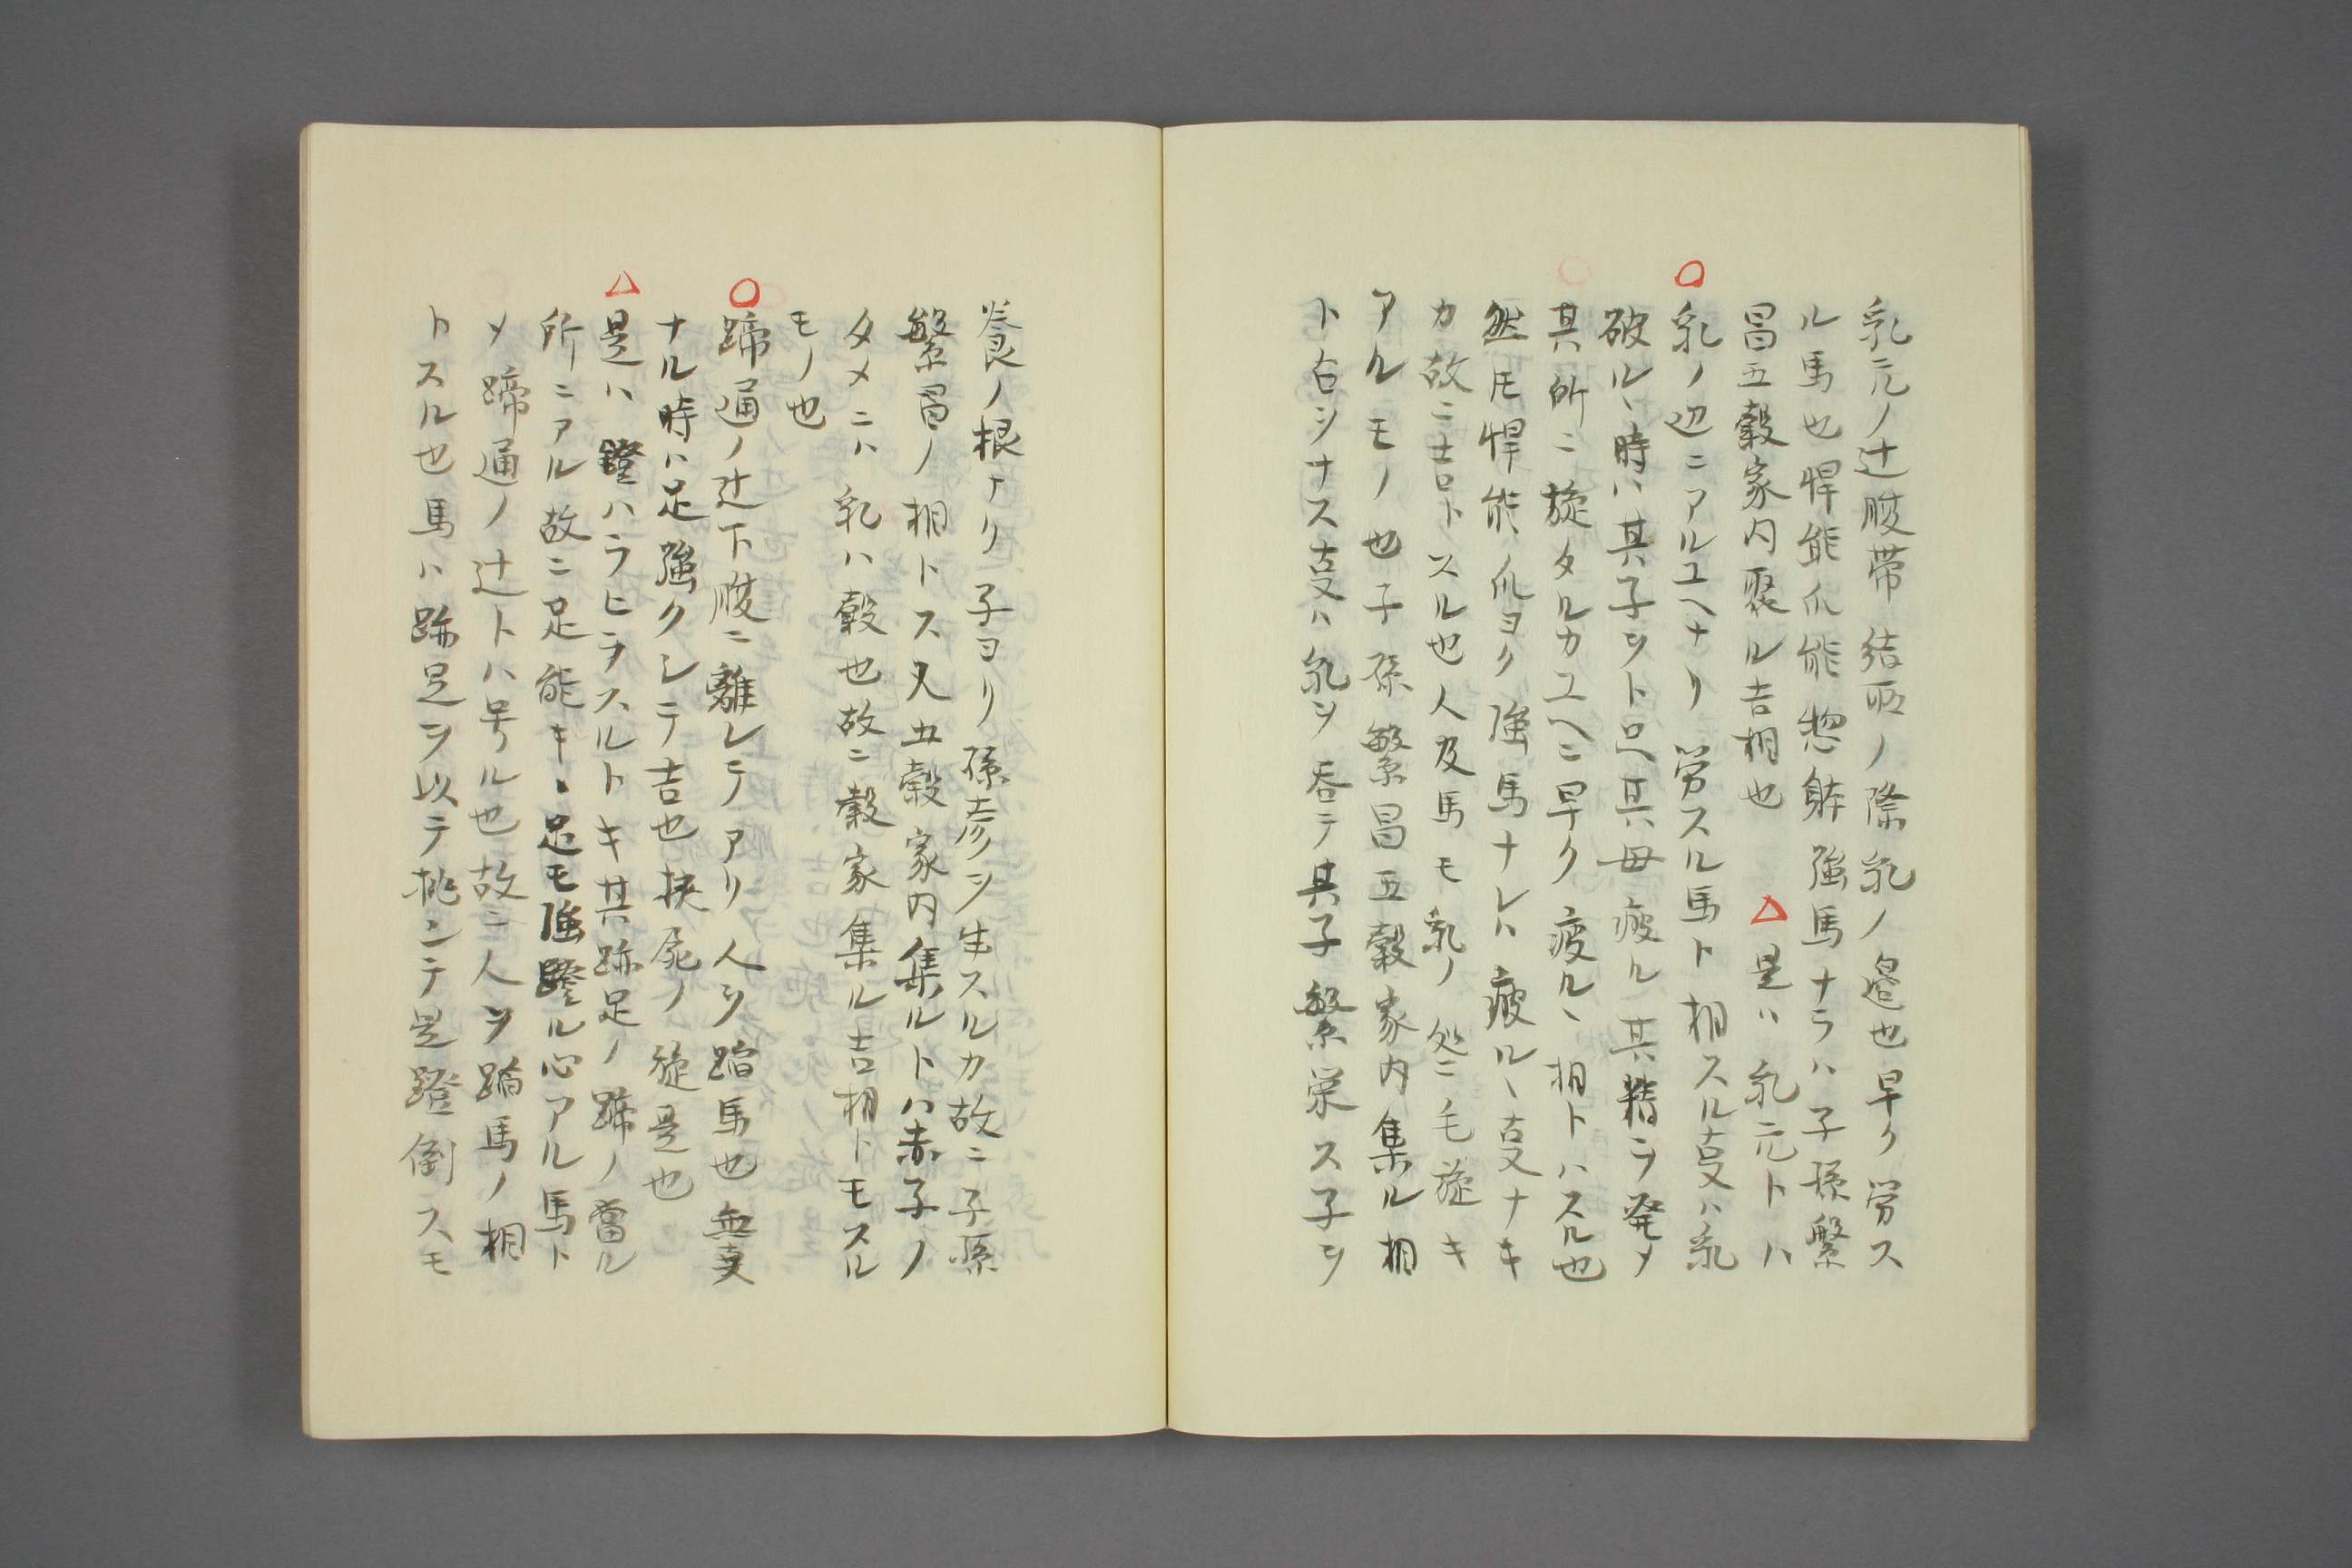 乳元ノ辻腹帯結所ノ際乳ノ邉也早ク労ス
ル馬也悍能爪能惣躰強馬ナラハ子孫繁
昌五穀家内聚ル吉相也 △是ハ乳元トハ
○乳ノ辺ニアルユヘナリ労スル馬ト相スル支ハ乳
破ルヽ時ハ其子ットハ其母疲ル其精ヲ発メ
其所ニ旋タルカユヘニ早ク疲ルヽ相トハスル也
然圧悍能爪ヨク強馬ナレハ疲ルヽ支ナキ
カ故ニ吉トスル也人及馬モ乳ノ処ニ毛旋キ
アルモノ也子孫繁昌五穀家内集ル相
ト占ヲナス支ハ乳ヲ呑テ其子繁栄ス子ヲ
養ノ根ナリ子ヨリ孫彦ヲ生スルカ故ニ子孫
繁昌ノ相トス又五穀家内集ルトハ赤子ノ
タメニハ乳ハ穀也故ニ穀家集ル吉相トモスル
モノ也
○蹄通ノ辻下腹ニ離レテアリ人ヲ踏馬也無支
ナル時ハ足強クシテ吉也挟尻ノ旋是也
△是ハ鐙ハラヒヲスルトキ其跡足ノ蹄ノ當ル
所ニアル故ニ足能キ足モ強蹬ル心アル馬ト
メ蹄通ノ辻トハ号ル也故ニ人ヲ踏馬ノ相
トスル也馬ハ跡足ヲ以テ挑ンテ是蹬倒スモ